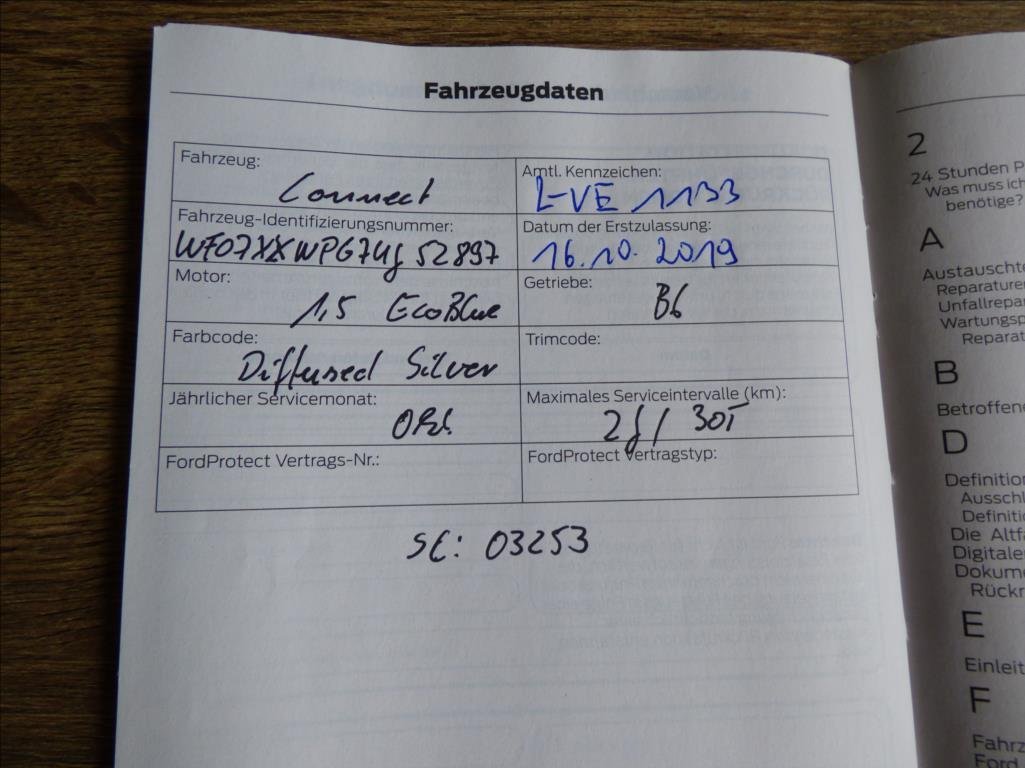 Fahrzeugdaten
Fahrzeug:
Connect
Amtl. Kennzeichen:
L-VE 1133
Fahrzeug-Identifizierungsnummer:
WF07XXWPG7HJ52897
Datum der Erstzulassung:
16.10.2019
Motor:
1,5 EcoBlue
Getriebe:
B6
Farbcode:
Diffused Silver
Trimcode:
Jährlicher Servicemonat:
Okt.
Maximales Serviceintervalle (km):
2J / 30T
FordProtect Vertrags-Nr.:
FordProtect Vertragstyp:
SC: 03253
2
24 Stunden P
Was muss ich
benötige?
A
Austauschte
Reparaturen
Unfallrepa
Wartungsp
Reparat
B
Betroffene
D
Definition
Ausschl
Definiti
Die Altfa
Digitale
Dokume
Rückr
E
Einleit
F
Fahrz
Ford